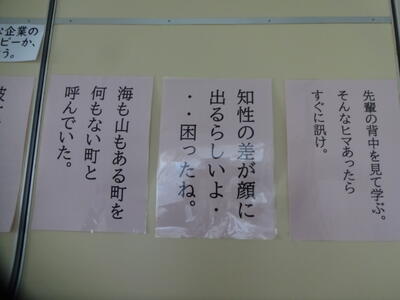 先輩の背中を見て学ぶ。
そんなヒマあったら
すぐに訊け。
知性の差が顔に
出るらしいよ・
・・困ったね。
海も山もある町を
何もない町と
呼んでいた。
な企業の
ピーか、
う。